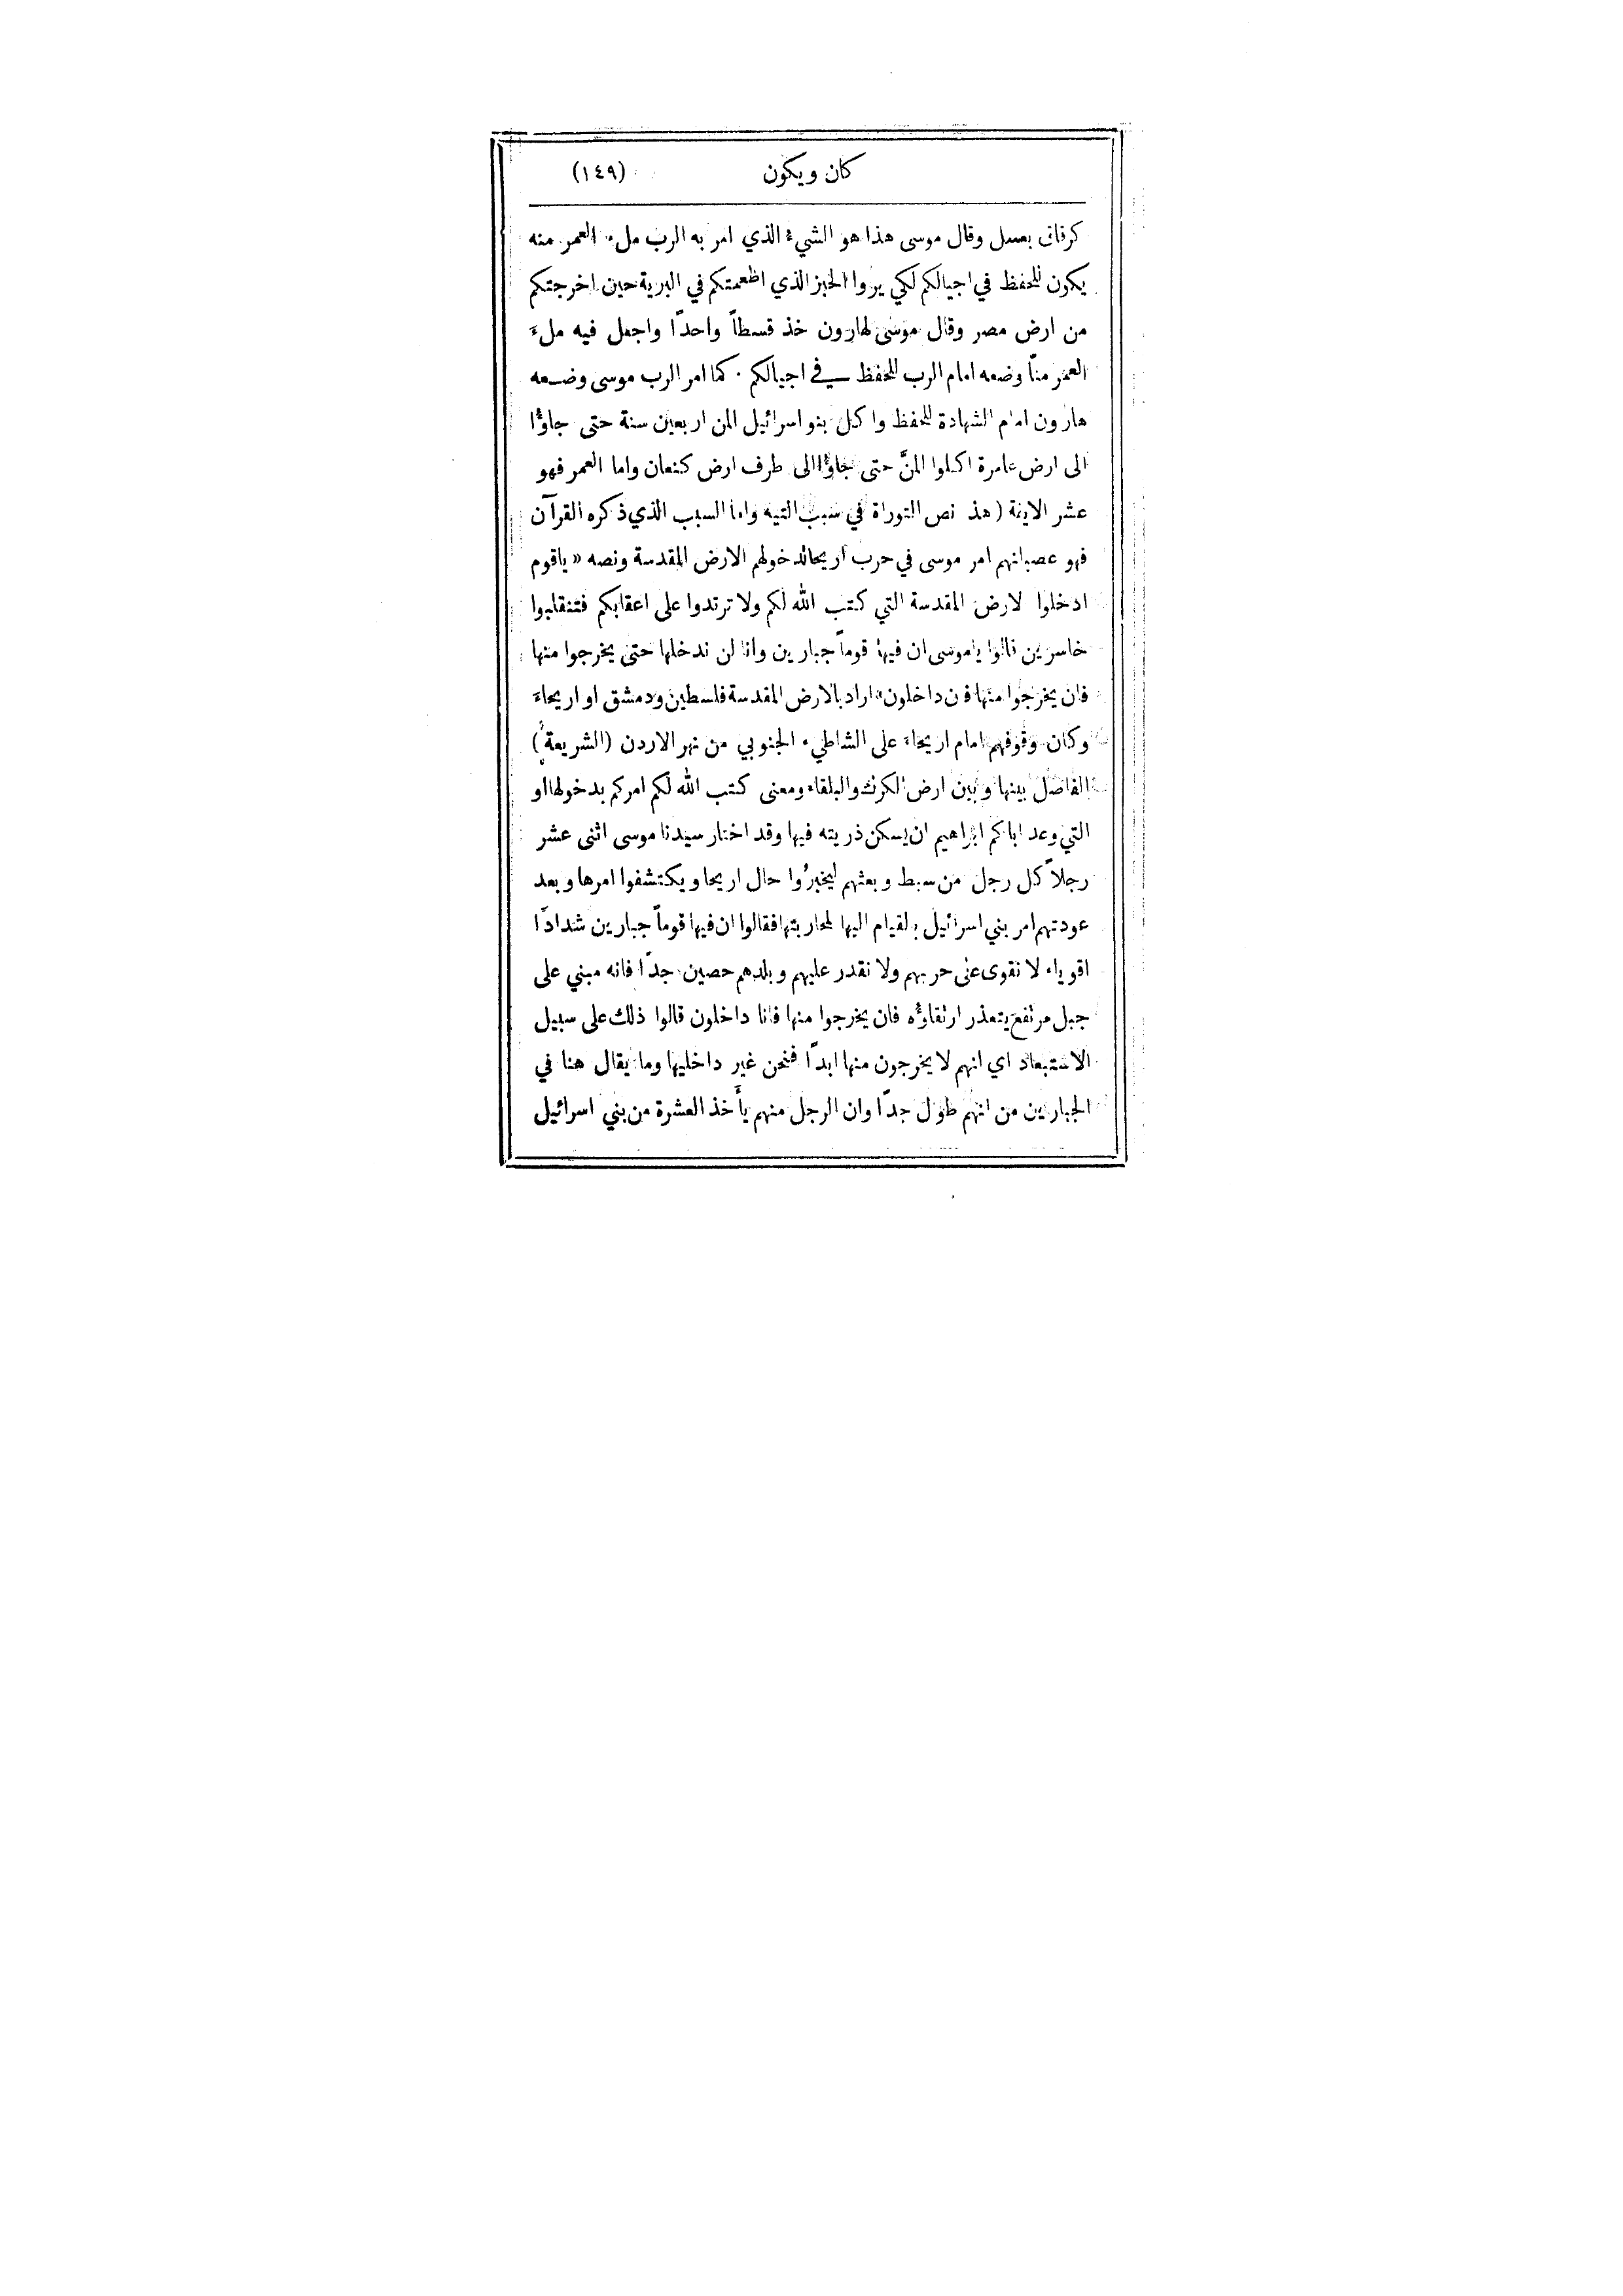 كان ويكون (١٤٩)
كرقاق بعسل وقال موسى هذا هو الشيء الذي امر به الرب ملء العمر منه
يكون للحفظ في اجيالكم لكي يروا الخبز الذي اطعمتكم في البرية حين اخرجتكم
من ارض مصر وقال موسى لهارون خذ قسطاً واحدًا واجعل فيه ملءَ
العمر منّا وضعه امام الرب للحفظ في اجيالكم . كما امر الرب موسى وضعه
هارون امام الشهادة للحفظ واكل بنو اسرائيل المن اربعين سنة حتى جاؤا
الى ارض عامرة اكلوا المنَّ حتى جاؤا الى طرف ارض كنعان واما العمر فهو
عشر الايفة (هذ نص التوراة في سبب التيه واما السبب الذي ذكره القرآن
فهو عصيانهم امر موسى في حرب اريحا لدخولهم الارض المقدسة ونصه « ياقوم
ادخلوا لارض المقدسة التي كتب الله لكم ولا ترتدوا على اعقابكم فتنقلبوا
خاسرين قالوا ياموسى ان فيها قوماً جبارين وانا لن ندخلها حتى يخرجوا منها
فان يخرجوا منها فن داخلون» اراد بالارض المقدسة فلسطين ودمشق او اريحاءَ
وكان وقوفهم امام اريحاءَ على الشاطيء الجنوبي من نهر الاردن (الشريعة)
الفاصل بينها وبين ارض الكرك والبلقاء ومعنى كتب الله لكم امركم بدخولها او
التي وعد اباكم ابراهيم ان يسكن ذريته فيها وقد اختار سيدنا موسى اثنى عشر
رجلاً كل رجل من سبط وبعثهم ليخبرُوا حال اريحا ويكتشفوا امرها وبعد
عودتهم امر بني اسرائيل بلقيام اليها لمحاربتها فقالوا ان فيها قوماً جبارين شدادًا
اقوياء لا نقوى على حربهم ولا نقدر عليهم وبلدهم حصين جدًا فانه مبني على
جبل مرتفع يتعذر ارتقاؤه فان يخرجوا منها فانا داخلون قالوا ذلك على سبيل
الاستبعاد اي انهم لا يخرجون منها ابدًا فنحن غير داخليها وما يقال هنا في
الجبارين من انهم طول جدًا وان الرجل منهم يأخذ العشرة من بني اسرائيل